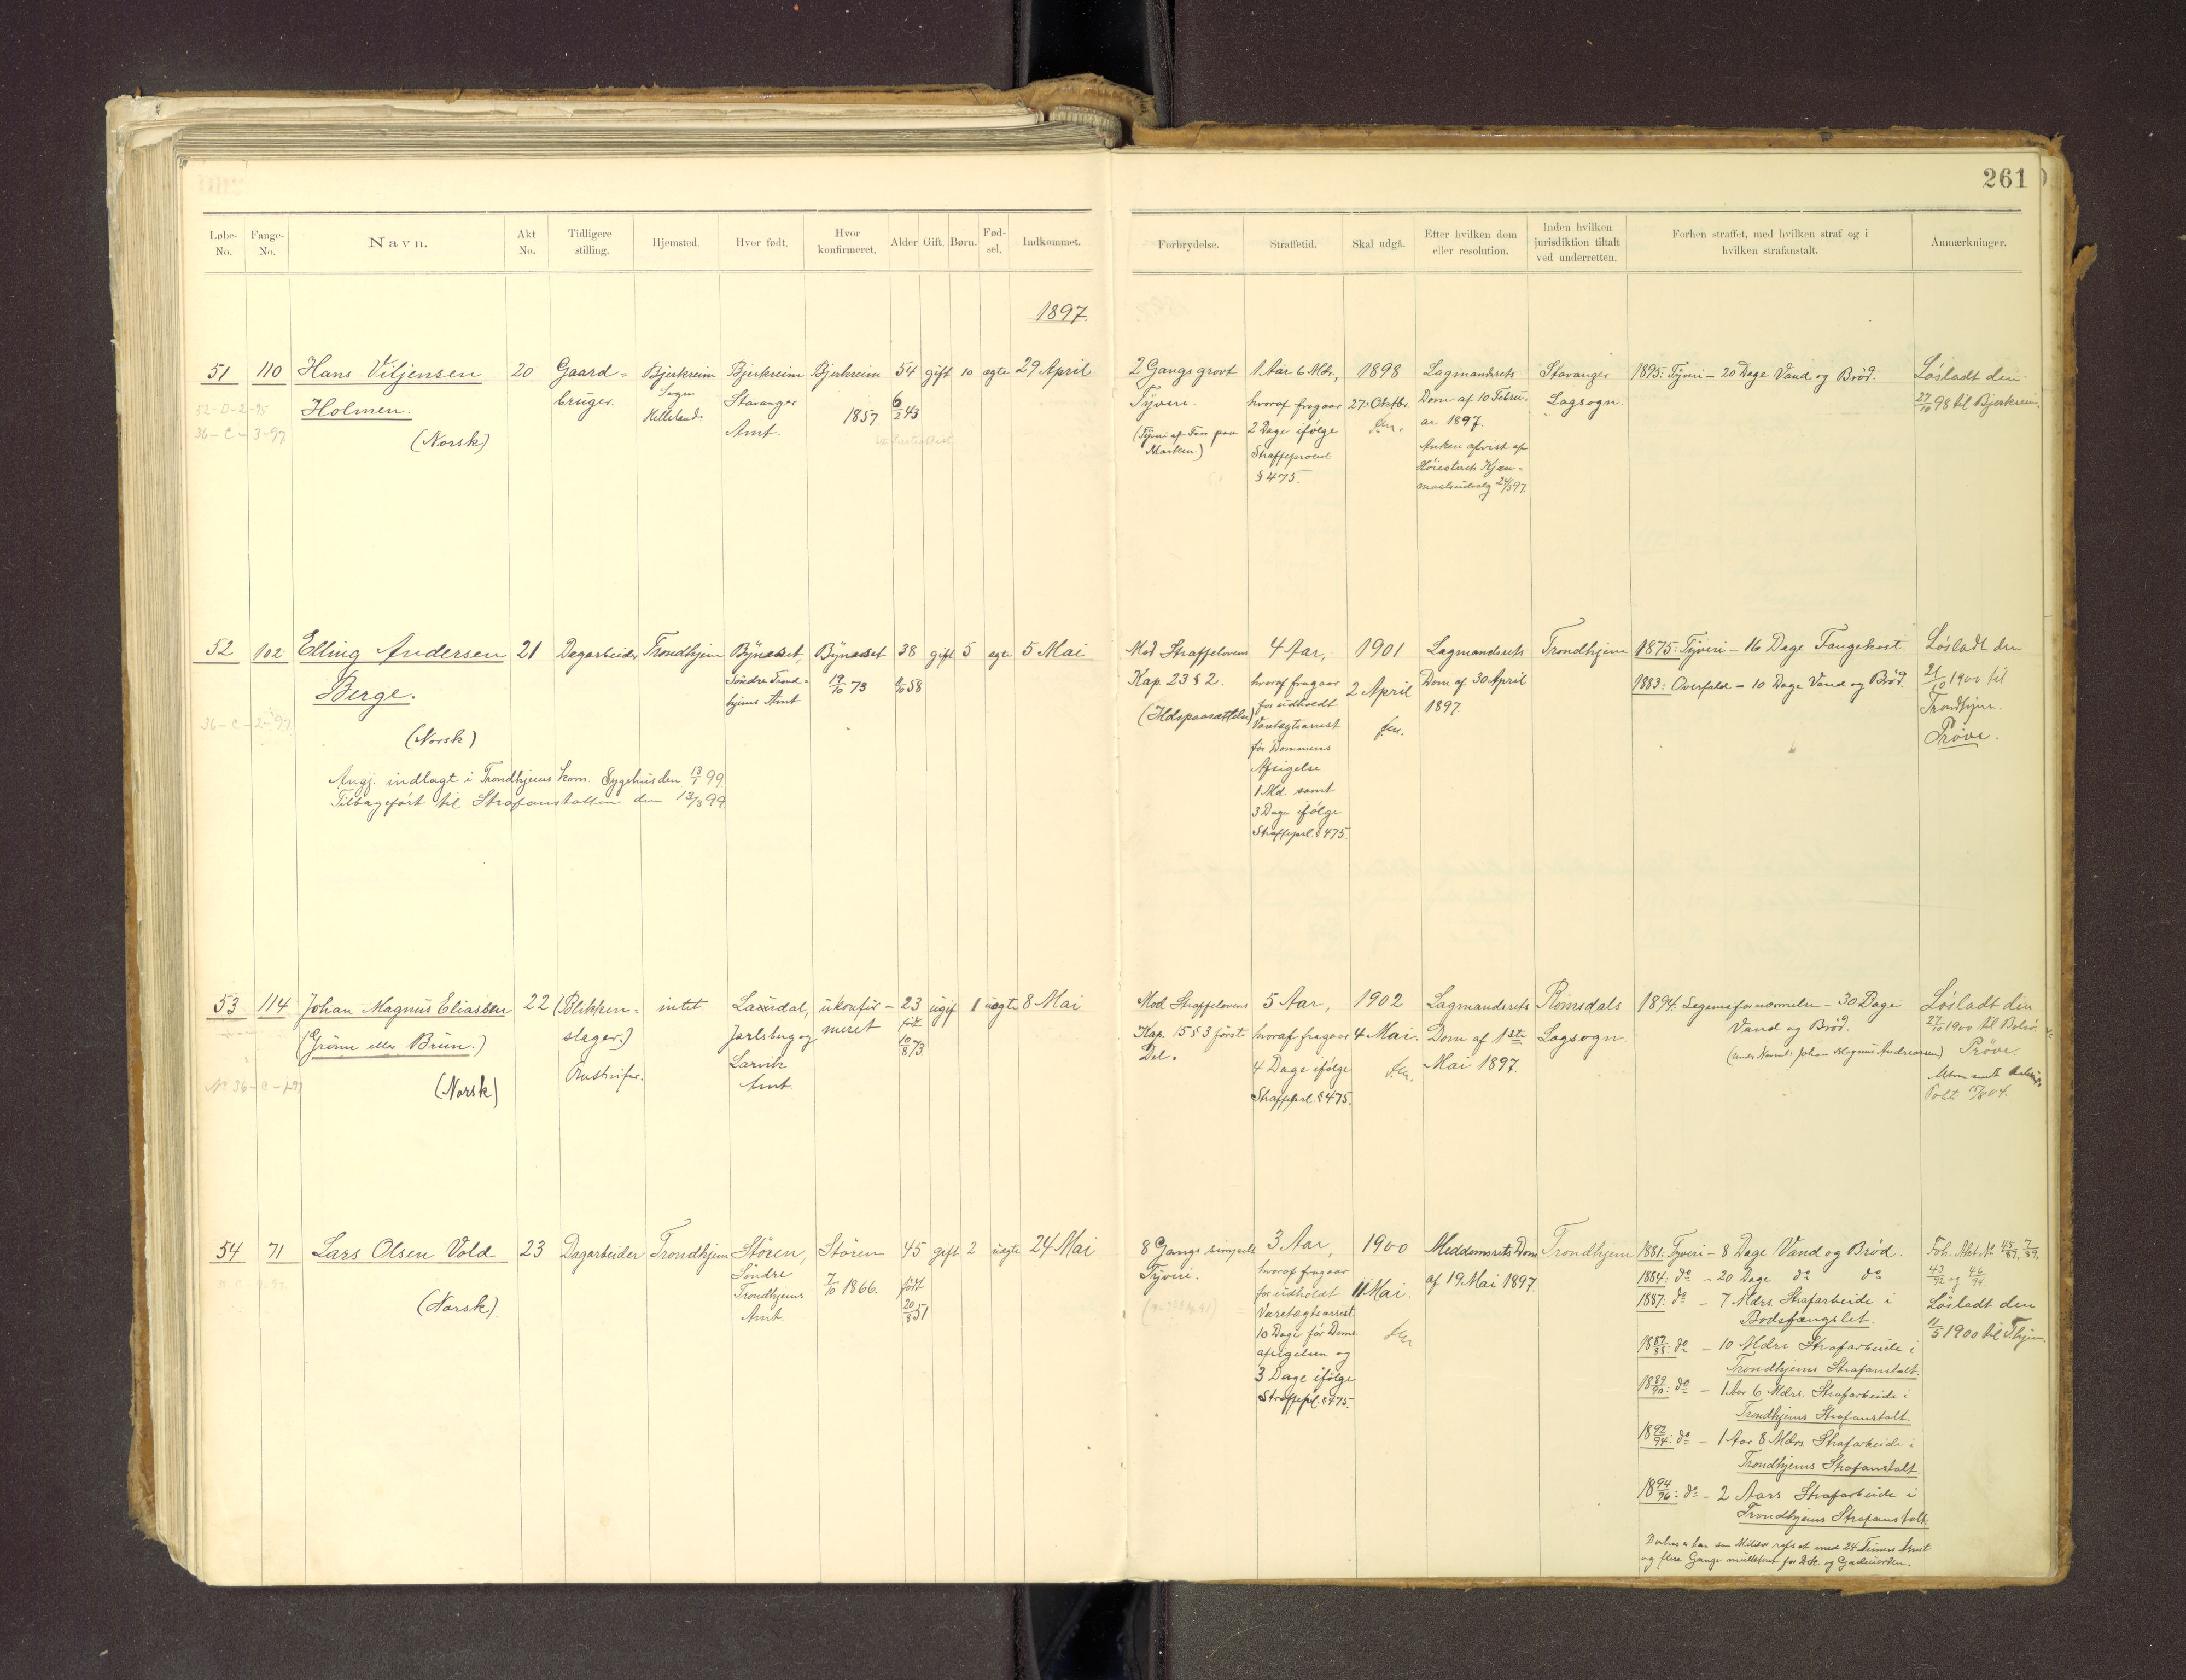 261
Løbe-No.
Fange-No.
Navn.
Akt No.
Tidligere stilling.
Hjemsted.
Hvor født.
Hvor konfirmeret.
Alder
Gift.
Børn.
Fød-sel.
Indkommet.
Forbrydelse.
Straffetid.
Skal udgå.
Efter hvilken dom eller resolution.
Inden hvilken jurisdiktion tiltalt ved underretten.
Forhen straffet, med hvilken straf og i hvilken strafanstalt.
Anmærkninger.
1897.
51
52-D-2-95
36-C-3-97
110
Hans Viljensen
Holmen.
(Norsk)
20
Gaard=
bruger.
Bjerkreim
Sogn
Helleland.
Bjerkreim
Stavanger
Amt.
Bjerkreim
1857.
54
6/2 43
gift
10
ægte
29 April
2 Gangs grovt
Tyveri.
(Tyveri af Faar paa
Marken)
1 Aar 6 Mdr,
hvoraf fragaar
2 Dage ifølge
Straffeprocesl
§ 475.
1898
27. Oktbr.
Lagmandsrets
Dom af 10 Febru=
ar 1897.
Anken afvist af
Høiesterets Kjæ=
remaalsudvalg 24/3 97.
Stavanger
Lagsogn.
1895: Tyveri - 20 Dage Vand og Brød.
Løsladt den
27/10 98 til Bjerkreim.
52
36-C-2-97
102
Elling Andersen
Berge.
(Norsk)
Angj. indlagt i Trondhjems kom. Sygehus den 13/1 99
Tilbageført til Strafanstalten den 13/3 99
21
Dagarbeider
Trondhjem
Bynæsset,
Søndre Trond=
hjems Amt
Bynæsset
19/10 73
38
58
gift
5
egte
5 Mai
Mod Straffelovens
Kap. 23 § 2.
(Ildspaasættelse)
4 Aar,
hvoraf fragaar
for udholdt
Varetægtsarrest
før Dommens
Afsigelse
1 Md. samt
3 Dage ifølge
Straffeprl. § 475.
1901
2 April
Lagmandsrets
Dom af 30 April
1897.
Trondhjem
1875: Tyveri - 16 Dage Fangekost.
1883: Overfald - 10 Dage Vand og Brød.
Løsladt den
21/10 1900 til
Trondhjem.
Prøve.
53
No 36-C-1-97
114
Johan Magnus Eliassen
(Grönn eller Brun.)
(Norsk)
22
(Blikken=
slager.)
intet
Laurdal,
Jarlsberg og
Larvik
Amt.
ukonfir-
meret
23
født
10/8 73.
ugift
1
uægte
8 Mai
Mod Straffelovens
Kap. 15 § 3 først
Del.
5 Aar,
hvoraf fragaar
4 Dage ifølge
Straffeprl. § 475.
1902
4 Mai.
Lagmandsrets
Dom af 1ste
Mai 1897.
Romsdals
Lagsogn.
1894: Legemsfornærmelse - 30 Dage
Vand og Brød.
(under Navnet: Johan Magnus Andreassen)
Løsladt den
27/10 1900 til Bolsø.
Prøve
54
71
Lars Olsen Vold
(Norsk).
23
Dagarbeider
Trondhjem
Støren,
Søndre
Trondhjems
Amt.
Støren
7/10 1866.
45
født
20/8 51
gift
2
uægte
24 Mai
8 Gangs simpelt
Tyveri.
3 Aar,
hvoraf fragaar
for udholdt
Varetægtsarrest
10 Dage før Doms-
afsigelsen og
3 Dage ifølge
Straffeprl. § 475.
1900
11 Mai.
Meddomsrets Dom
af 19 Mai 1897.
Trondhjem
1881: Tyveri - 8 Dage Vand og Brød.
1884: do - 20 Dage do do
1887: do - 7 Mdrs. Strafarbeide i
Bodsfængslet.
1887/88: do - 10 Mdrs Strafarbeide i
Trondhjems Strafanstalt.
1889/90: do - 1 Aar 6 Mdrs. Strafarbeide i
Trondhjems Strafanstalt.
1892/94: do - 1 Aar 8 Mdrs Strafarbeide i
Trondhjems Strafanstalt.
1894/96: do - 2 Aars Strafarbeide i
Trondhjems Strafanstalt.
Derhos er han som Militær refset med 24 Timers Arrest
og flere Gange mulkteret for Drik og Gadeuorden.
Foh. Akt. No 45/87, 7/89,
43/92 og 46/94.
Løsladt den
11/5 1900 til Thjem.